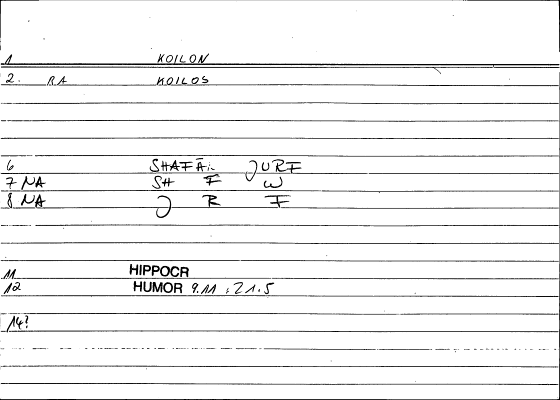 1 KOILON
2. RA KOILOS
6 SHAFĀ: JURF
7 NA SH F W
8 NA J R F
11 HIPPOCR
12 HUMOR 9.11 ; 21.5
14?